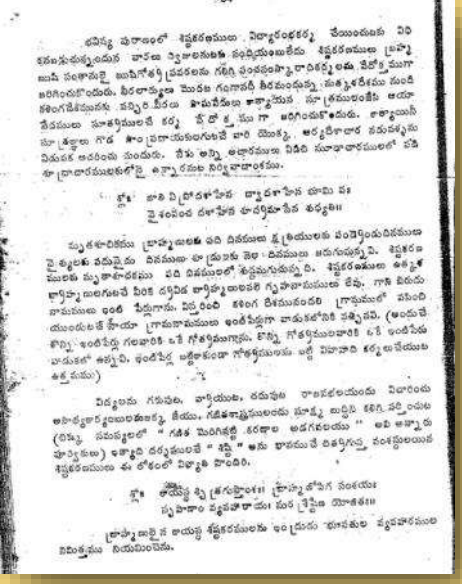 భవిష్య పురాణంలో శిష్టకరణములు విద్యారంభకర్మ చేయించుటకు విధి
కనబడుచున్నందున వారలు ద్విజులనుటకు సందియంబులేదు శిష్టకరణములు బ్రహ్మ
ఋషి సంతానులై ఋషిగోత్ర ప్రవరలను గలిగి పంచసంస్కారాది కర్మలను వేదోక్తముగా
జరిగించుకొందురు. వీరలామ్యుల మొదట గంగానది తీరమందున్న దేశము నుండి
కళింగదేశమునకు వచ్చిరి వీరలు సామవేదులు కాత్యాయన సూత్రములంజేసి ఆయా
వేదములు సూత్రములచే కర్మ వేదోక్తముగా జరిగించుకొందురు. కాత్యాయనీ
సూత్రజ్ఞులు గౌడ సాంప్రదాయకులగుటచే వారి యొక్క ఆర్యదేశాచార నడువళ్ళను
విడువక ఆచరించు చుందురు. నేడు అన్ని ఆచారములు విడిచి మూఢాచారములలో పడి
శూద్రాచారములకులోనై ఉన్నారనుట నిర్వివాదాంశము.
శ్లో॥ జాతి విప్రోదశాహేన ద్వాదశాహేన భూమి పః
వైశ్యంపంచ దశాహేన శూద్రోమాసేన శుధ్యతి॥
మృతశూచికము బ్రాహ్మణులకు పది దినములు క్షత్రియులకు పండ్రెండుదినములు
వైశ్యులకు పదునైదు దినములు శూద్రులకు నెల దినములు జరుగుచున్నవి. శిష్టకరణ
ములకు మృతాశౌచకము పది దినములలో శుద్ధమగుచున్నది. శిష్టకరణములు ఉత్కళ
బ్రాహ్మణులగుటచే వీరికి ద్రవిడ బ్రాహ్మణులవలె గృహనామములు లేవు. గాన బిరుదు
నామములు ఇంటి పేర్లుగాను, విస్తరించి కళింగ దేశమునందలి గ్రామములలో వసించి
యుండుటచే ఆయా గ్రామనామములు ఇంటిపేర్లుగా వాడుకలోనికి వచ్చినవి. (అందుచే
కొన్ని ఇంటిపేర్లు గలవారికి ఒకే గోత్రముగ్రాను. కొన్ని గోత్రములవారికి ఒకే ఇంటిపేరు
వాడుకలో ఉన్నవి. ఇంటిపేర్ల బట్టికాకుండా గోత్రములను బట్టి వివాహాది కర్మలుచేయుట
ఉత్తమము)
విద్యలను గరపుట, వ్రాయుట, చదువుట రాజసభలయందు విచారించు
అసాధ్యకార్యంబులను జేయు, గణితశాస్త్రములందు సూక్ష్మ బుద్ధిని కలిగి వర్తించుట
(లెక్కల సమస్యలలో " గణిత మెరిగినట్టి కరణాల అడగవలయు " అని అన్నారు
పూర్వీకులు) ఇత్యాది ధర్మములచే " శిష్ట " అను భావముచే చిత్రగుప్త వంశస్థులయిన
శిష్టకరణములు ఈ లోకంలో విఖ్యాతి పొందిరి.
శ్లో॥ కాయస్థ శ్చిత్రగుప్తాంశః బ్రాహ్మణోపిన సంశయః
నృహణాం వ్యవహారాయః సుర శ్రేష్టేణ యోజితః॥
బ్రాహ్మణులైన కాయస్థ శిష్టకరములను ఇంద్రుడు భూపతుల వ్యవహారముల
నిమిత్తము నియమించెను.